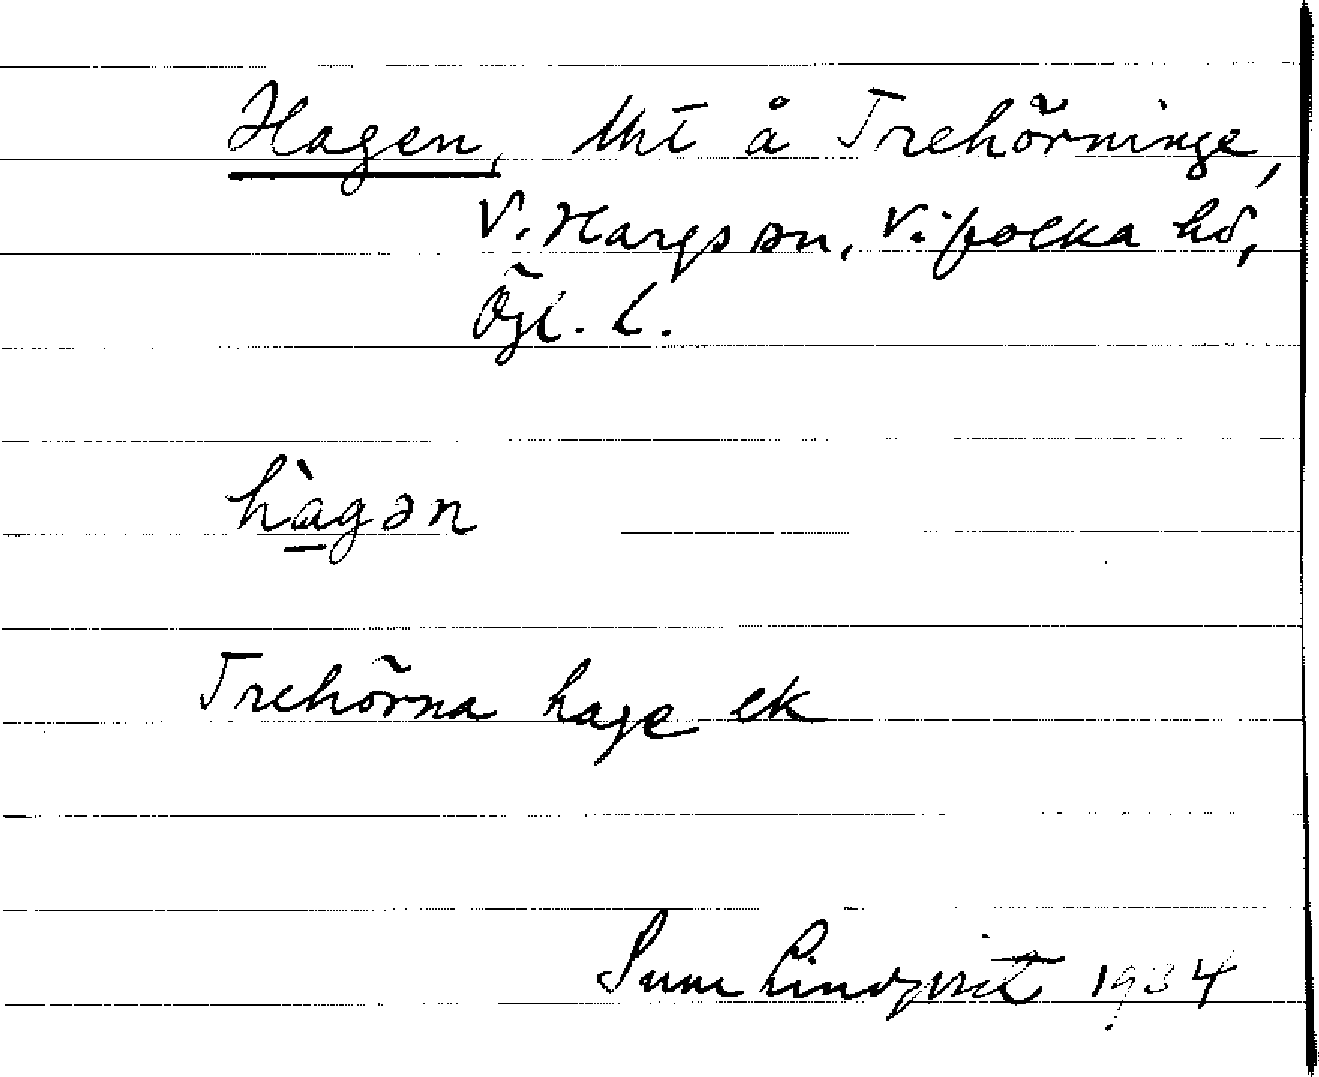 Hagen, lht å Trehörninge,
V. Hargs sn, Vifolka hd,
Ögl. l.
hàgən
Trehörna hage ek
Sune Lindqvist 1934